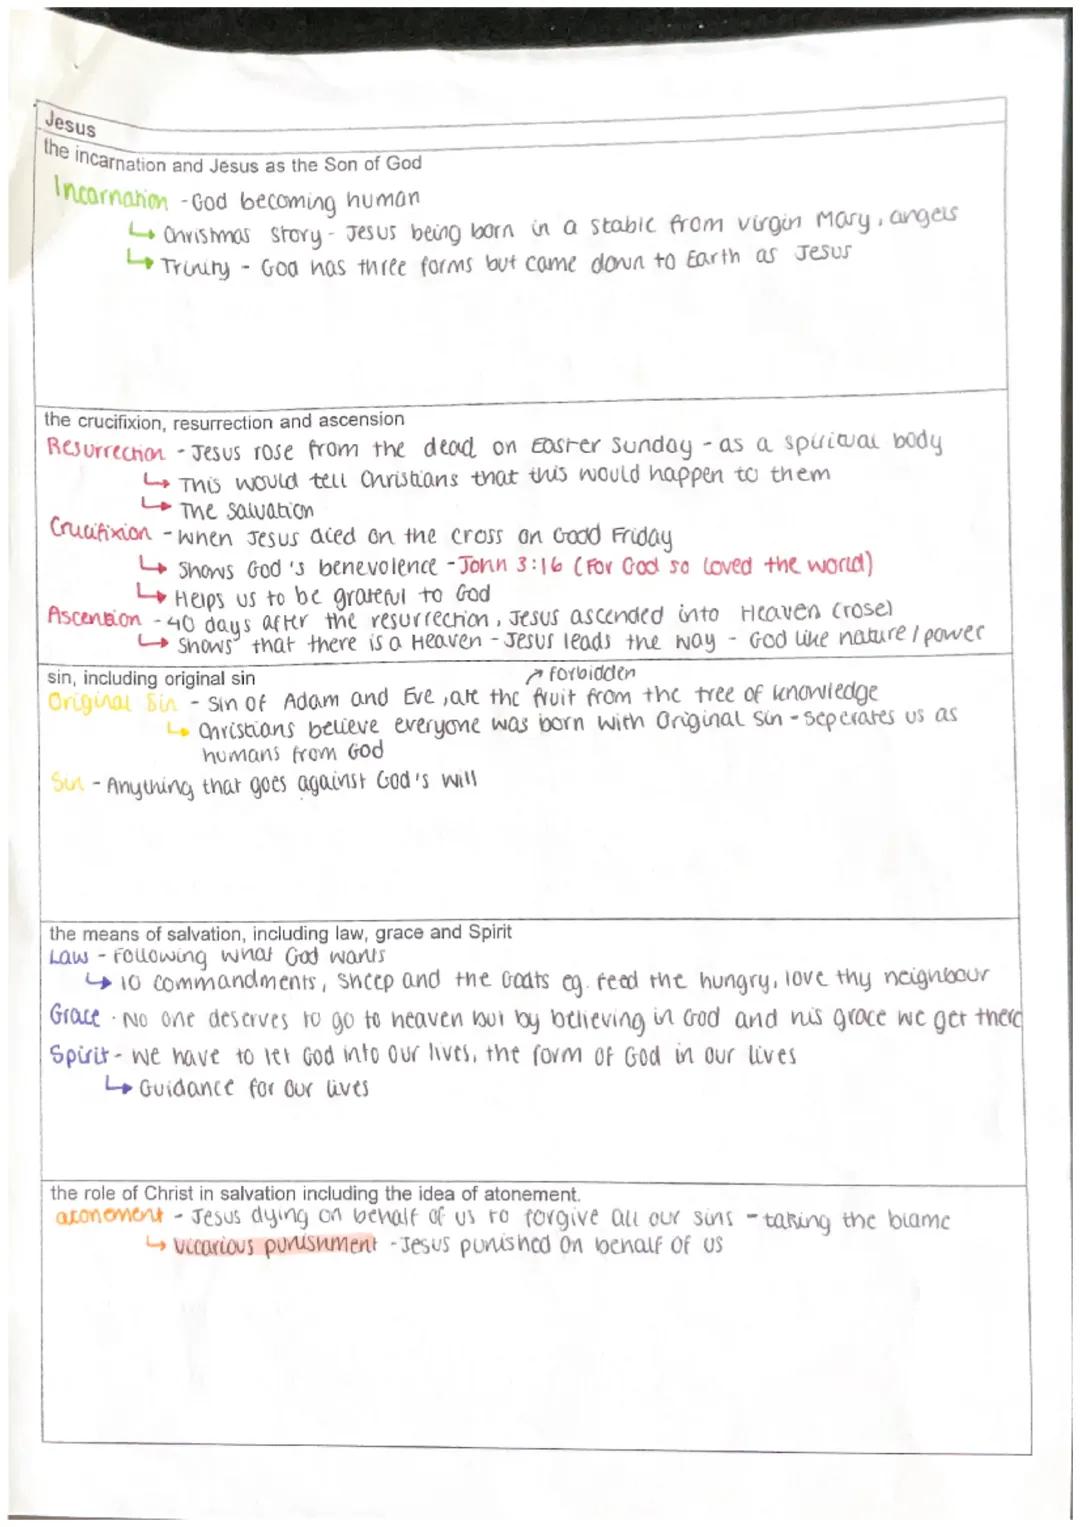 Jesus
the incarnation and Jesus as the Son of God
Incarnation - God becoming human
↳ Christmas story - Jesus being born in a stable from virgin Mary, angels
↳ Trinity - God has three forms but came down to Earth as Jesus
the crucifixion, resurrection and ascension
Resurrection - Jesus rose from the dead on Easter Sunday - as a spiritual body
↳ This would tell Christians that this would happen to them
↳ The salvation
Crucifixion - when Jesus died on the cross on Good Friday
↳ Shows God's benevolence - John 3:16 (For God so loved the world)
↳ Helps us to be grateful to God
Ascension - 40 days after the resurrection, Jesus ascended into Heaven (rose)
↳ Shows that there is a Heaven - Jesus leads the way - God like nature / power
sin, including original sin
↗ forbidden
Original Sin - Sin of Adam and Eve, ate the fruit from the tree of knowledge
↳ Christians believe everyone was born with Original Sin - seperates us as
humans from God
Sin - Anything that goes against God's will
the means of salvation, including law, grace and Spirit
Law - Following what God wants
↳ 10 commandments, Sheep and the Goats eg. feed the hungry, love thy neighbour
Grace - No one deserves to go to heaven but by believing in God and his grace we get there
Spirit - we have to let God into our lives, the form of God in our lives
↳ Guidance for our lives
the role of Christ in salvation including the idea of atonement.
atonement - Jesus dying on behalf of us to forgive all our sins - taking the blame
↳ vicarious punishment - Jesus punished on behalf of us